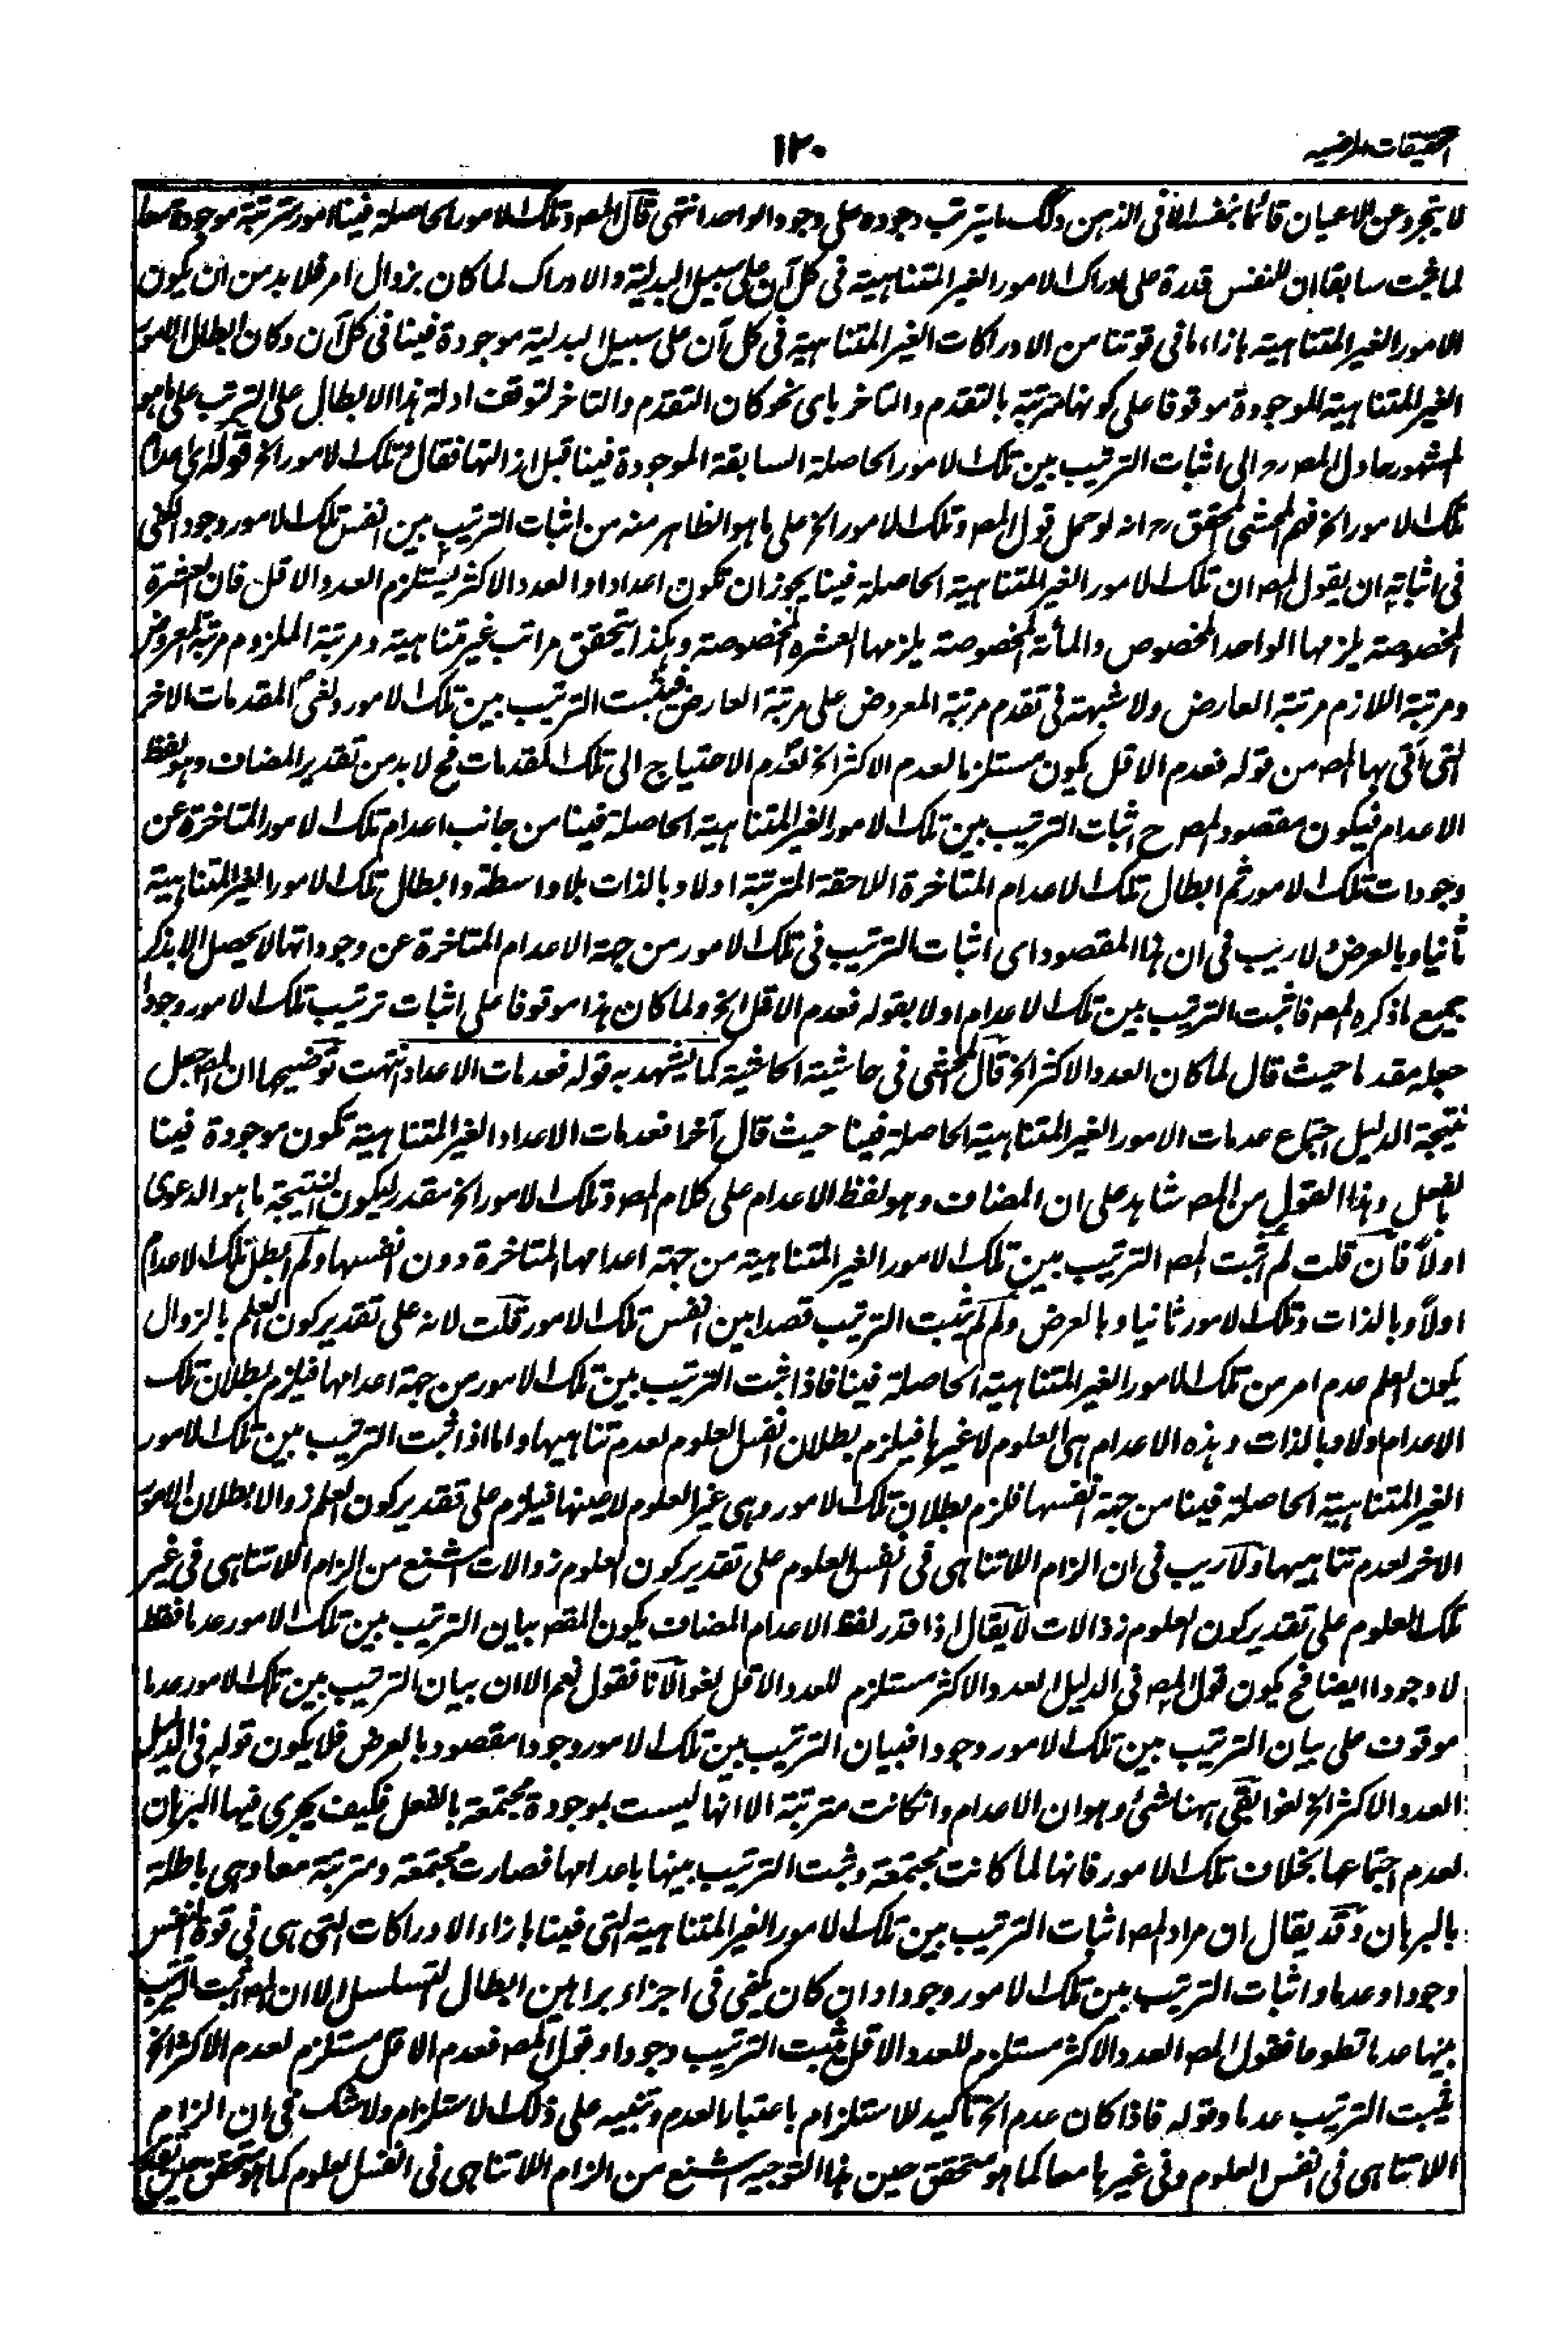 التحقيقات المرضيه
١٢٠
لا يتجرد عن الاعيان قائما بنفسه الا فى الذهن وذلك ما يترتب وجوده على وجود الواحد انتهى قال المصـ وتلك الامور الحاصلة فينا امور مترتبة موجودة معا
لما ثبت سابقا ان للنفس قدرة على ادراك الامور الغير المتناهية فى كل آن على سبيل البدلية والادراك لما كان بزوال امر فلا بد من ان يكون
الامور الغير المتناهية بازاء ما فى قوتنا من الادراكات الغير المتناهية فى كل آن على سبيل البدلية موجودة فينا فى كل آن وكان ابطال الامور
الغير المتناهية الموجودة موقوفا على كونها مترتبة بالتقدم والتاخر باى نحو كان التقدم والتاخر لتوقف ادلة هذا الابطال على الترتيب على ما هو
المشهور حاول المصـ رح الى اثبات الترتيب بين تلك الامور الحاصلة السابقة الموجودة فينا قبل ازالتها فقال وتلك الامور الخ قوله اى اعدام
تلك الامور الخ فهم المحشى المحقق رح انه لو حمل قول المصـ وتلك الامور الخ على ما هو الظاهر منه من اثبات الترتيب بين انفس تلك الامور وجودا لكفى
فى اثباته ان يقول المصـ ان تلك الامور الغير المتناهية الحاصلة فينا يجوز ان تكون اعدادا والعدد الاكثر يستلزم العدد الاقل فان العشرة
المخصوصة يلزمها الواحد المخصوص والمأة المخصوصة يلزمها العشرة المخصوصة وهكذا يتحقق مراتب غير متناهية ومرتبة الملزوم مرتبة المعروض
ومرتبة اللازم مرتبة العارض ولا شبهة فى تقدم مرتبة المعروض على مرتبة العارض فيثبت الترتيب بين تلك الامور ولغى المقدمات الاخر
التى أتى بها المصـ من قوله فعدم الاقل يكون مستلزما لعدم الاكثر الخ لعدم الاحتياج الى تلك المقدمات فح لا بد من تقدير المضاف وهو لفظ
الاعدام فيكون مقصود المصـ ح اثبات الترتيب بين تلك الامور الغير المتناهية الحاصلة فينا من جانب اعدام تلك الامور المتاخرة عن
وجودات تلك الامور ثم ابطال تلك الاعدام المتاخرة اللاحقة المترتبة اولا وبالذات بلا واسطة وابطال تلك الامور الغير المتناهية
ثانيا وبالعرض ولا ريب فى ان هذا المقصود اى اثبات الترتيب فى تلك الامور من جهة الاعدام المتاخرة عن وجوداتها لا يحصل الا بذكر
جميع ما ذكره المصـ فاثبت الترتيب بين تلك الاعدام اولا بقوله فعدم الاقل الخ ولما كان هذا موقوفا على اثبات ترتيب تلك الامور وجودا
جعله مقدما حيث قال لما كان العدد الاكثر الخ قال المحشى فى حاشية الحاشية كما يشهد به قوله فعدمات الاعداد انتهت توضيحها ان المصـ جعل
نتيجة الدليل اجتماع عدمات الامور الغير المتناهية الحاصلة فينا حيث قال آخرا فعدمات الاعداد الغير المتناهية تكون موجودة فينا
بالفعل وهذا القول من المصـ شاهد على ان المضاف وهو لفظ الاعدام على كلام المصـ وتلك الامور الخ مقدر ليكون النتيجة ما هو الدعوى
اولا فان قلت لم اثبت المصـ الترتيب بين تلك الامور الغير المتناهية من جهة اعدامها المتاخرة دون انفسها ولم ابطل تلك الاعدام
اولا وبالذات وتلك الامور ثانيا وبالعرض ولم لم يثبت الترتيب قصدا بين انفس تلك الامور قلت لانه على تقدير كون العلم بالزوال
يكون العلم عدم امر من تلك الامور الغير المتناهية الحاصلة فينا فاذا ثبت الترتيب بين تلك الامور من جهة اعدامها فيلزم بطلان تلك
الاعدام اولا وبالذات وهذه الاعدام هى العلوم لا غيرها فيلزم بطلان انفس العلوم لعدم تناهيها واما اذا ثبت الترتيب بين تلك الامور
الغير المتناهية الحاصلة فينا من جهة انفسها فلزم بطلان تلك الامور وهى غير العلوم لا عينها فيلزم على تقدير كون العلم زوالا بطلان الامور
الاخر لعدم تناهيها ولا ريب فى ان الزام اللاتناهى فى انفس العلوم على تقدير كون العلوم زوالات اشنع من الزام اللاتناهى فى غير
تلك العلوم على تقدير كون العلوم زوالات لا يقال اذا قدر لفظ الاعدام المضاف يكون المقصـ بيان الترتيب بين تلك الامور عدما فقط
لا وجودا ايضا فح يكون قول المصـ فى الدليل العدد الاكثر مستلزم للعدد الاقل لغوا لانا نقول نعم الا ان بيان الترتيب بين تلك الامور عدما
موقوف على بيان الترتيب بين تلك الامور وجودا فبيان الترتيب بين تلك الامور وجودا مقصود بالعرض فلا يكون قوله فى الدليل
العدد الاكثر الخ لغوا بقى ههنا شئ وهو ان الاعدام وانكانت مترتبة الا انها ليست بموجودة مجتمعة بالفعل فكيف يجرى فيها البرهان
لعدم اجتماعها بخلاف تلك الامور فانها لما كانت مجتمعة وثبت الترتيب بينها باعدامها فصارت مجتمعة ومترتبة معا وهى باطلة
بالبرهان وقد يقال ان مراد المصـ اثبات الترتيب بين تلك الامور الغير المتناهية التى فينا بازاء الادراكات التى هى فى قوة النفس
وجودا وعدما واثبات الترتيب بين تلك الامور وجودا وان كان يكفى فى اجراء براهين ابطال التسلسل الا ان المصـ اثبت الترتيب
بينها عدما تطوعا فقول المصـ العدد الاكثر مستلزم للعدد الاقل مثبت الترتيب وجودا وقول المصـ فعدم الاقل مستلزم لعدم الاكثر الخ
يثبت الترتيب عدما وقوله فاذا كان عدم الخ تاكيد للاستلزام باعتبار العدم وتنبيه على ذلك الاستلزام ولا شك فى ان الزام
اللاتناهى فى انفس العلوم وفى غيرها معا كما هو متحقق حين هذا التوجيه اشنع من الزام اللاتناهى فى انفس العلوم كما هو متحقق حين